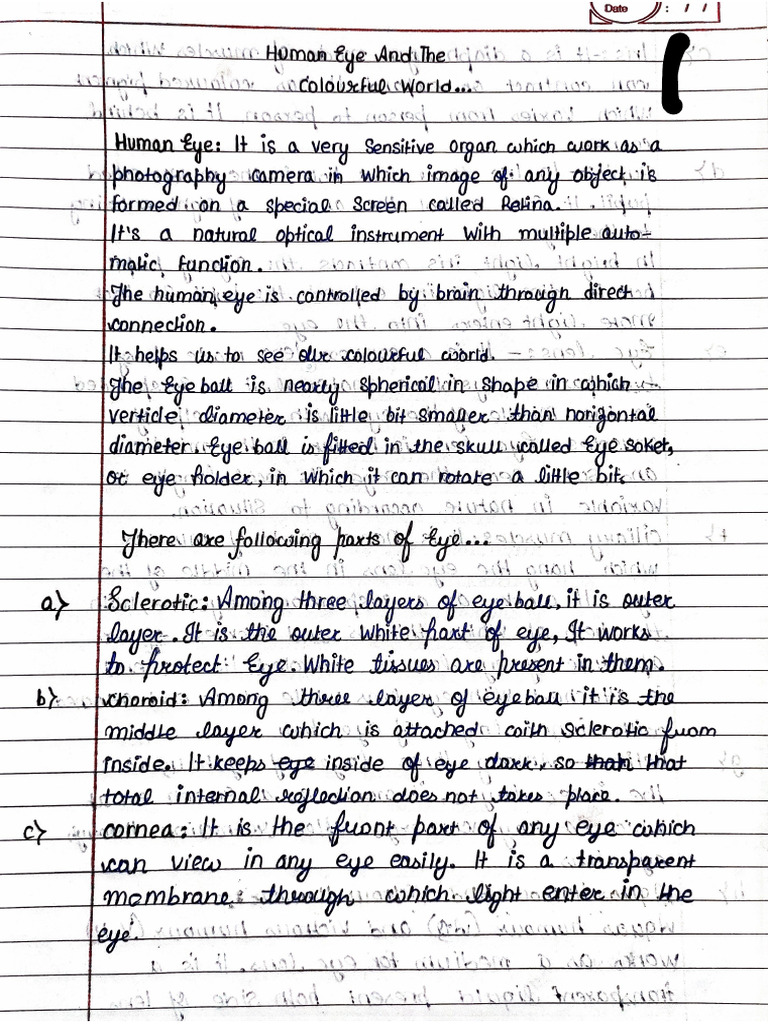 Date : 11
Human Eye And The
Colourful World...
Human Eye: It is a very sensitive organ which work as a
photography camera in which image of any object is
formed on a special screen called Retina.
It's a natural optical instrument with multiple auto-
matic function.
The human eye is controlled by brain through direct
connection.
It helps us to see our colourful world.
The Eye ball is nearly spherical in shape in which
verticle diameter is little bit smaller than horizontal
diameter. Eye ball is fitted in the skull called Eye soket,
or eye holder, in which it can rotate a little bit.
There are following parts of Eye...
a) Sclerotic: Among three layers of eye ball, it is outer
layer. It is the outer white part of eye, It works
to protect Eye. White tissues are present in them.
b) Choroid: Among three layer of eyeball it is the
middle layer which is attached with sclerotic from
inside. It keeps eye inside of eye dark, so than that
total internal reflection does not takes place.
c) cornea: It is the front part of any eye which
can view in any eye easily. It is a transparent
membrane through which light enter in the
eye.